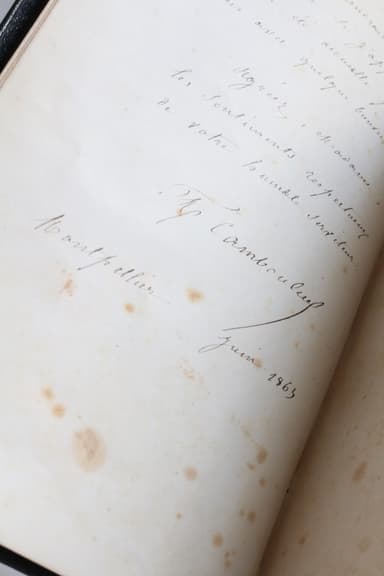 de accueillir
avec quelque bien
Agréez, Madame,
les sentiments respectueux
de votre humble serviteur
Camboulиu
Montpellier
juin 1863